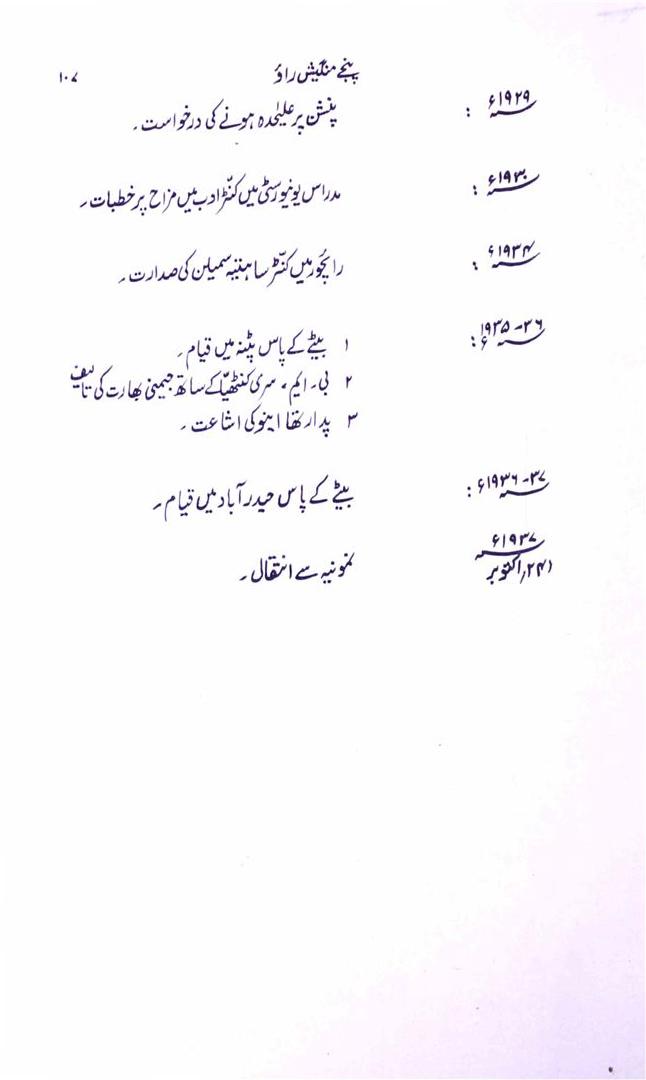 پنجے منگیش راؤ ۱۰۷
۱۹۲۹ء : پنشن پر علیٰحدہ ہونے کی درخواست۔
۱۹۳۰ء : مدراس یونیورسٹی میں کنّڑ ادب میں مزاح پر خطبات۔
۱۹۳۴ء : رائچور میں کنّڑ ساہتیہ سمیلن کی صدارت۔
۱۹۳۵-۳۶ء : ۱ بیٹے کے پاس پٹنہ میں قیام۔
۲ بی۔ ایم۔ سری کنٹھیّا کے ساتھ جیمنی بھارت کی تالیف
۳ پدارتھا اینو کی اشاعت۔
۱۹۳۶-۳۷ء : بیٹے کے پاس حیدرآباد میں قیام۔
۱۹۳۷ء
(۲۴؍اکتوبر نمونیہ سے انتقال۔